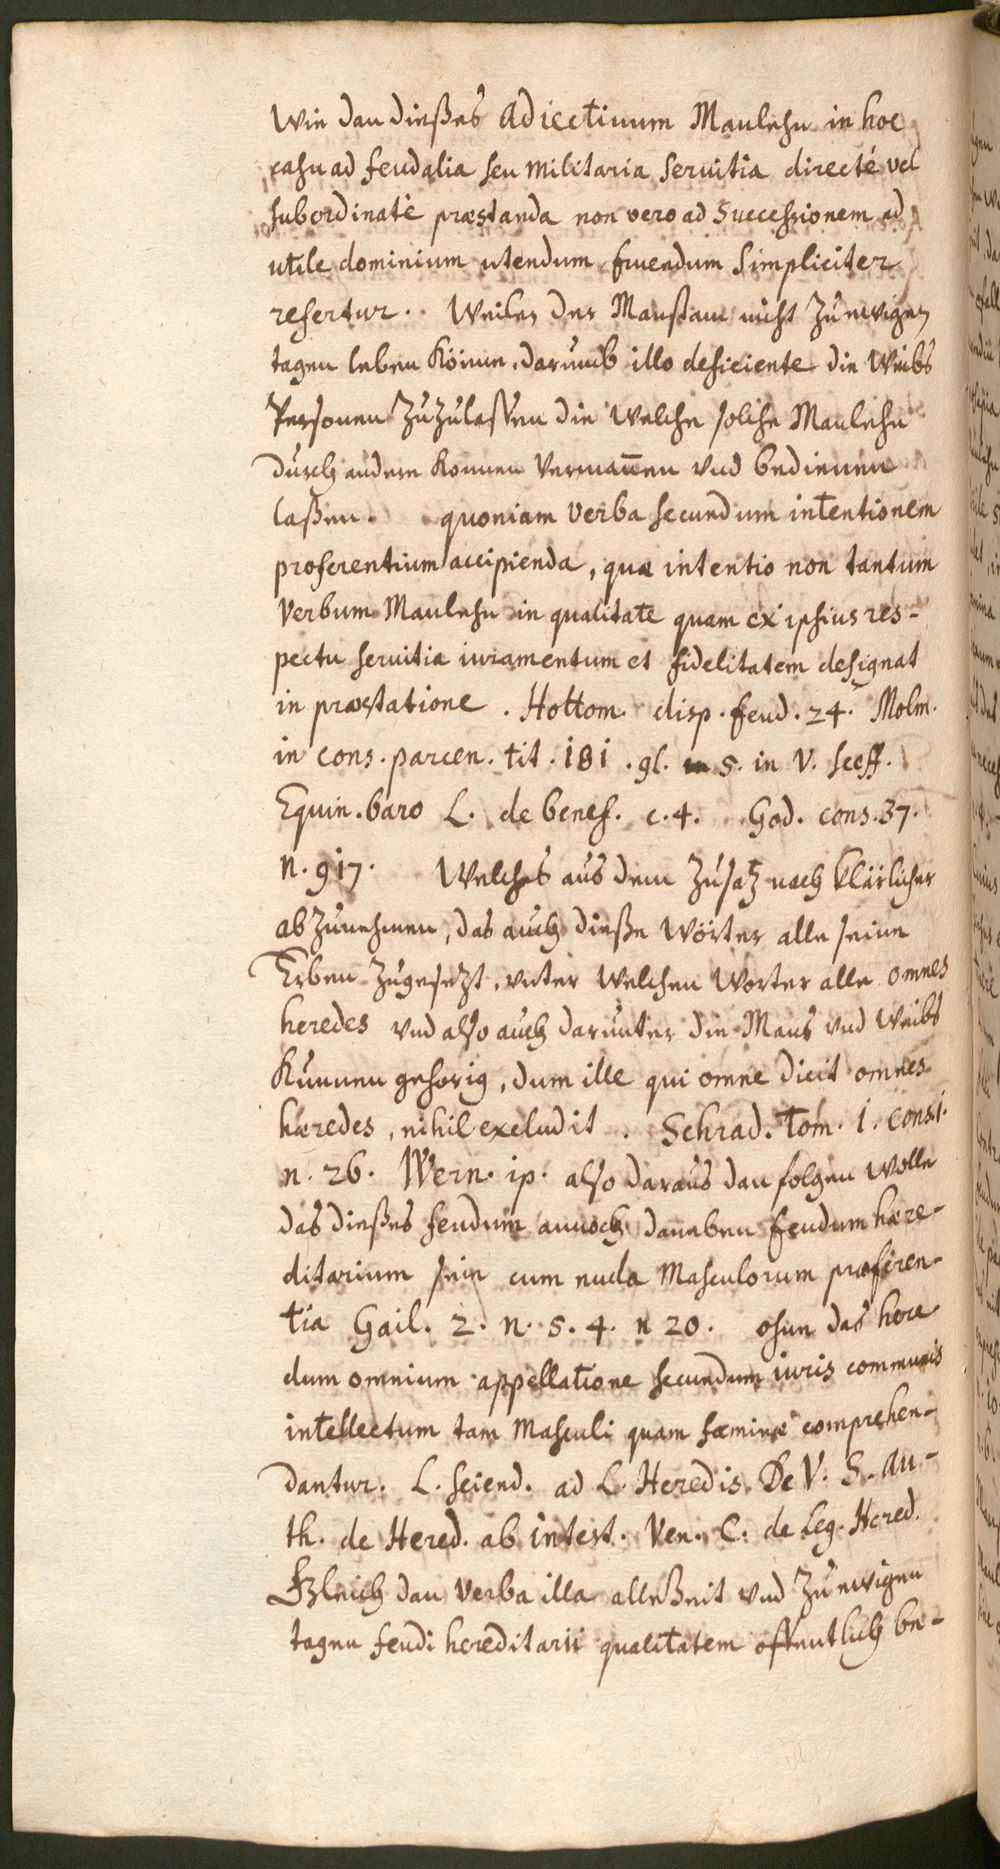 Wie dan dießes adiectivum Manlehn in hoc
casu ad feudalia seu militaria servitia directé vel
subordinaté præstanda non vero ad successionem ad
utile dominium utendum fruendum simpliciter
refertur. Weilen der Manßam nicht zu ewigen
tagen leben könne, darumb illo deficiente die Weibs
Personen zuzulassen die welche solche Manlehn
durch andere konnen vermañen vnd bedienen
laßen. quoniam verba secundum intentionem
proferentium accipienda, quæ intentio non tantum
verbum Manlehn in qualitate quam ex ipsius res-
pectu servitia iuramentum et fidelitatem designat
in præstatione. Hottom. disp. feud. 24. Molin.
in cons. parcen. tit. 181. gl. 5. in V. le eff.
Equin. baro L. de benef. c. 4. God. cons. 37.
n. 917. Welches aus dem Zusatz noch klärlicher
abzunehmen, das auch dieße wörter alle seine
Erben zugesetzt, vnter welchen worter alle omnes
heredes vnd also auch darunter die Mans vnd Weibs
Kunnen gehorig, dum ille qui omne dicit omnes
hæredes, nihil excludit. Schrad. Tom. 1. cons. 1.
n. 26. Wern. ip. also daraus dan folgen wolle
das dießes feudum annoch daneben feudum hære-
ditarium sein cum nuda masculorum præferen-
tia Gail. 2. n. 5. 4. n 20. ohne das here
dum omnium appellatione secundum iuris communis
intellectum tam masculi quam fæminæ comprehen-
dantur. L. sciend. ad L. Heredis. De V. S. Au-
th. de Hered. ab intest. Ven. C. de Leg. Hered.
Gleich dan verba illa alleßeit vnd zu ewigen
tagen feudi hereditarii qualitatem offentlich be-